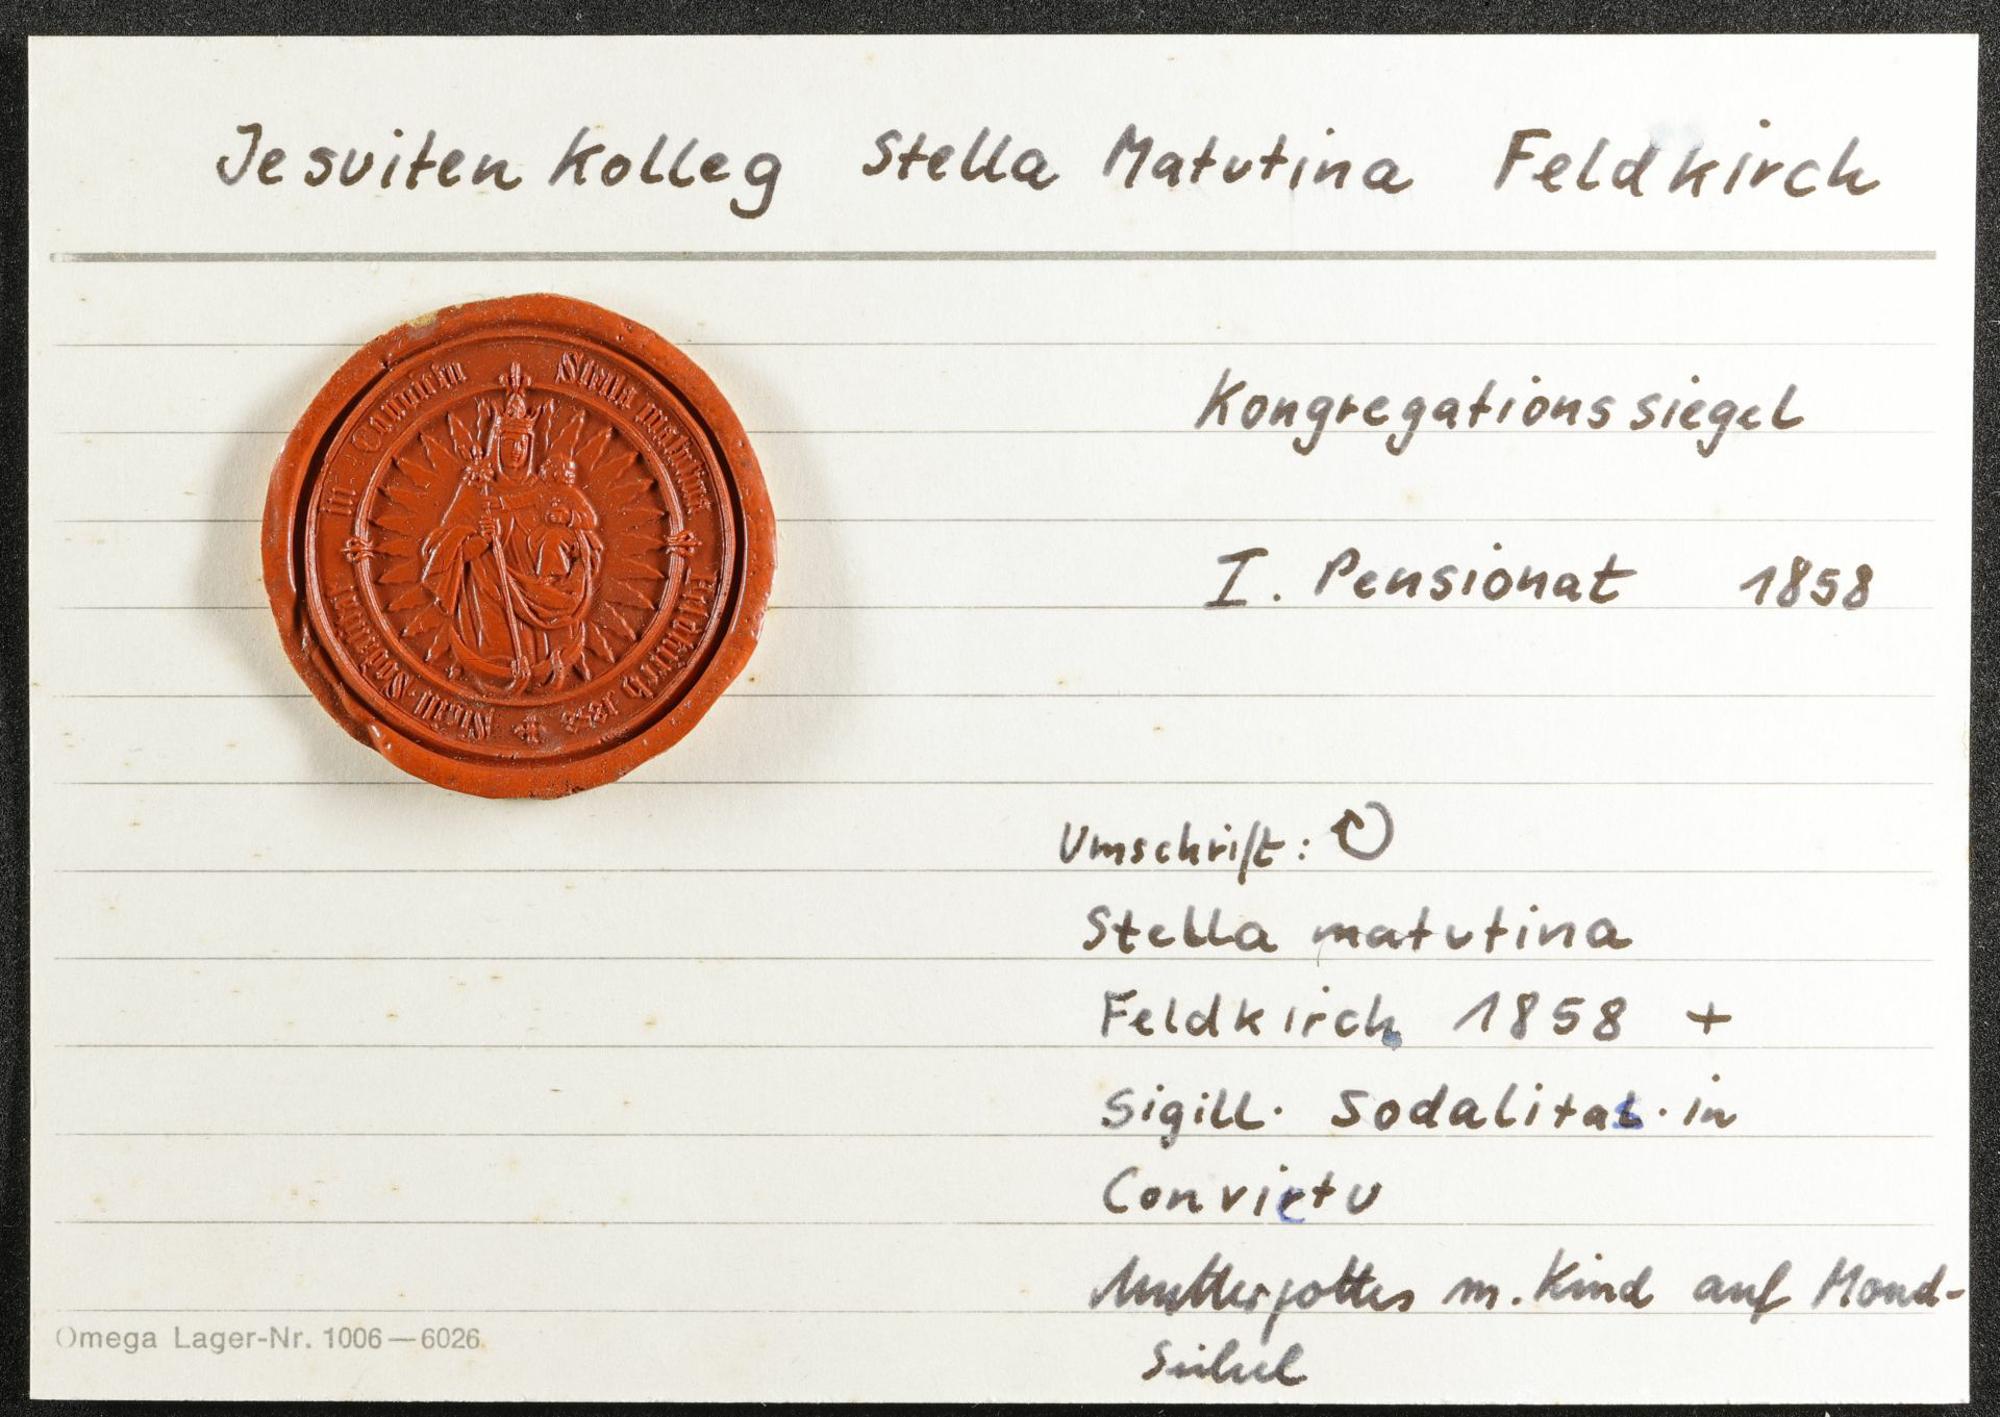 Jesuiten Kolleg Stella Matutina Feldkirch
Stella matutina Feldkirch 1858 Sigill. Sodalitat. in Convictu
Kongregationssiegel
I. Pensionat 1858
Umschrift:
Stella matutina
Feldkirch 1858 +
Sigill. Sodalitat. in
Convictu
Muttergottes m. Kind auf Mond-
sichel
Omega Lager-Nr. 1006—6026